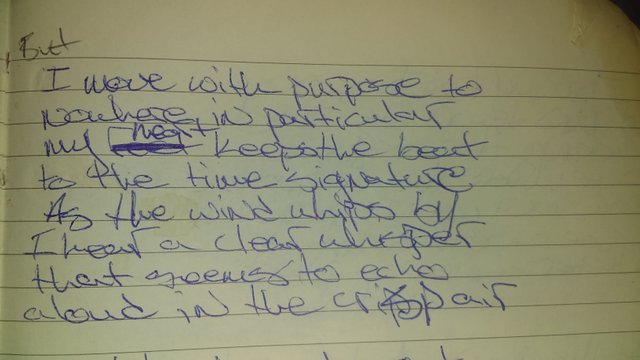 But
I move with purpose to
nowhere in particular
my heart keeps the beat
to the time signature
As the wind whips by
I hear a clear whisper
that seems to echo
aloud in the crisp air